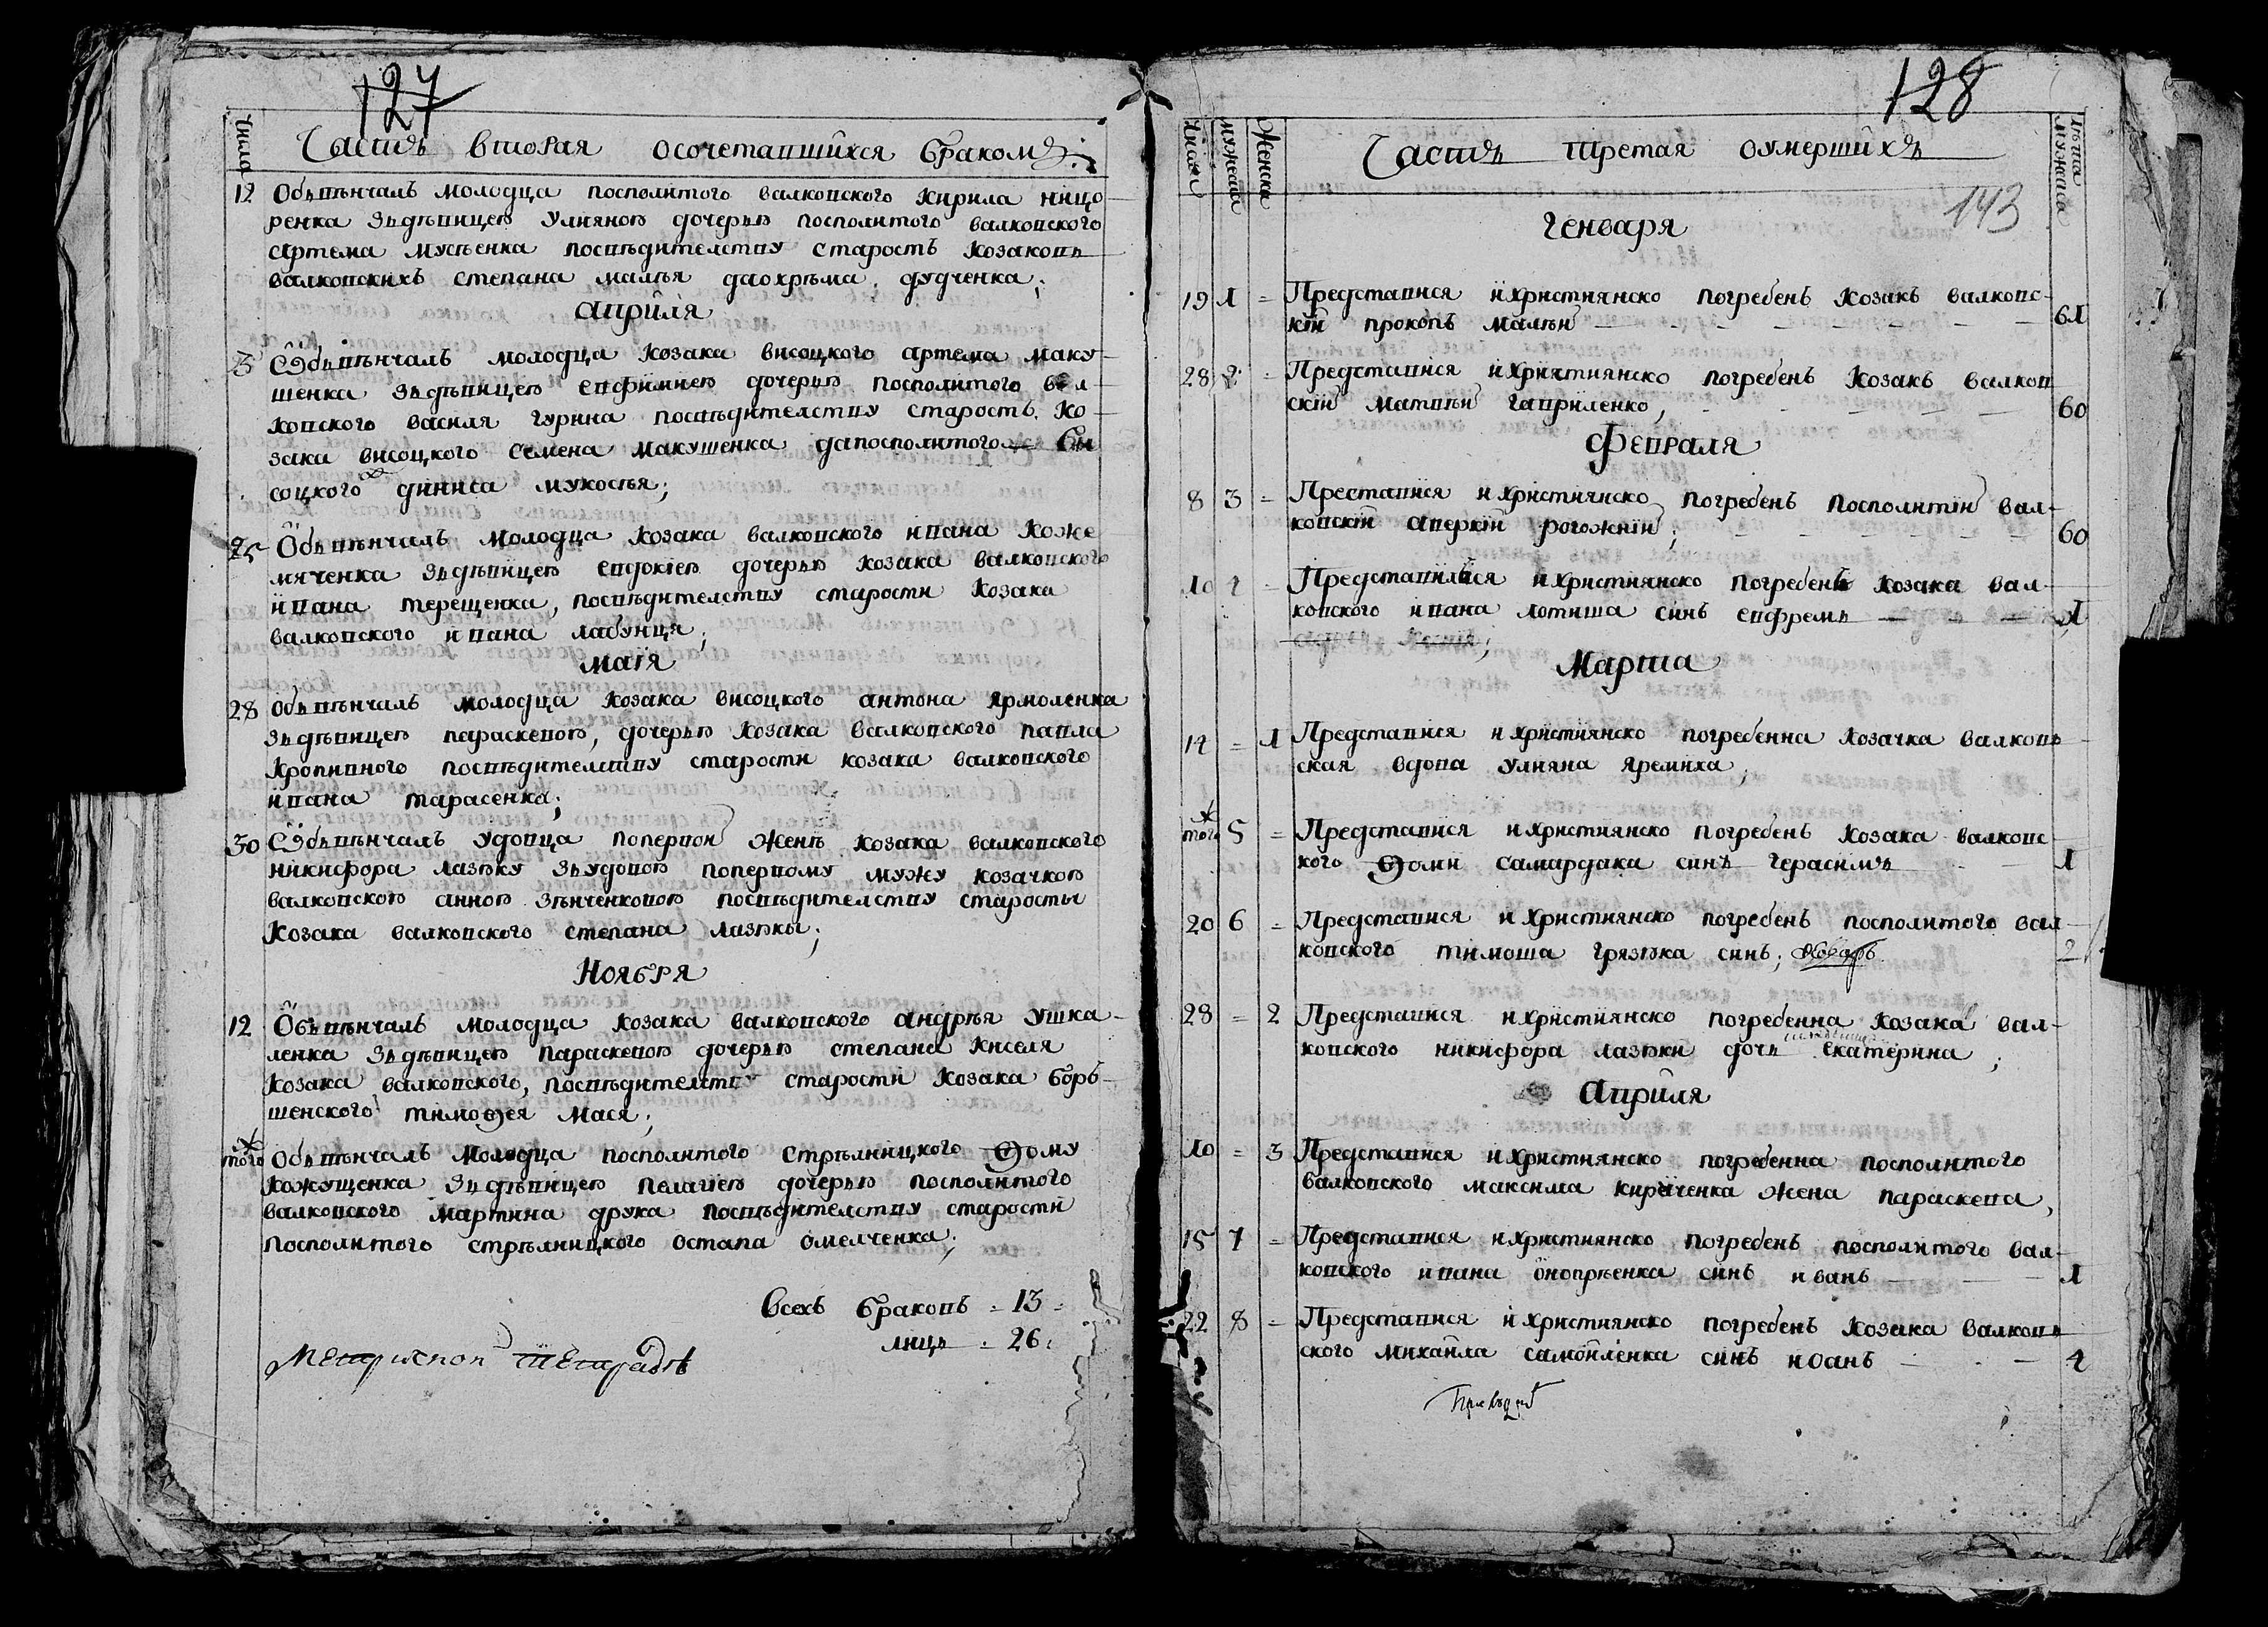 127
Число
Часть вторая осочетавшихся бракомъ:
12 Объвѣнчалъ молодца посполитого валковского Кирила ницо-
ренка зъдѣвицею Улияною дочерью посполитого валковского
артема мусѣенка посвѣдителству старостъ Козаковъ
валковскихъ степана малѣя даохрѣма дудченка;
априля
3 Объвѣнчалъ молодца козака висоцкого артема маку-
шенка зъдѣвицею евфимиею дочерью посполитого вал-
ковского василя гурина посвѣдителству старостъ ко-
зака висоцкого семена макушенка дапосполитого вы
соцкого диниса мукосѣя;
25 Объвѣнчалъ молодца козака валковского ивана коже
мяченка зъдѣвицею евдокіею дочерью козака валковского
ивана терещенка, посвѣдителству старости козака
валковского ивана лабунця;
маія
28 Объвѣнчалъ молодца козака висоцкого антона ярмоленка
зъдѣвицею параскевою, дочерью козака валковского павла
кропивного посвѣдителству старости козака валковского
ивана тарасенка;
30 Объвѣнчалъ удовца поперпой женѣ козака валковского
никифора лазѣку зъудовою поперпому мужу козачкою
валковскою анною зѣнченковою посвѣдителству старосты
козака валковского степана лазѣки;
Ноября
12 Объвѣнчалъ молодца козака валковского андрѣя ушка-
ленка зъдѣвицею параскевою дочерью степана киселя
козака валковского, посвѣдителству старости козака бор-
шенского тимоѳея мася;
того Объвѣнчалъ молодца посполитого стрѣлницкого Ѳому
кожущенка зъдѣвицею пелагіею дочерью посполитого
валковского мартина друка посвѣдителству старости
посполитого стрѣлницкого остапа омелченка;
всехъ браковъ = 13 =
лицъ = 26:
128
Число
мужеска
Женска
Часть третая оумершихъ
лѣта мужеска
143
Генваря
19 1 = Представися ихристиянско погребенъ козакъ валковс-
кій прокопъ малѣй 61
28 2 = Представися ихристиянско погребенъ козакъ валков
скій матвѣй гавриленко, 60
Февраля
8 3 = Преставися ихристиянско погребенъ посполитій вал-
ковскій аверкій рогожній; 60
10 4 = Представися ихристиянско погребенъ козака вал-
ковского ивана лотиша синъ евфремъ 1
Марта
14 = 1 Представися ихристиянско погребенна козачка валковъ
ская вдова улияна яремиха;
того 5 = Представися ихристиянско погребенъ козака валковс
кого Ѳоми самардака синъ герасимъ 1
20 6 = Представися ихристиянско погребенъ посполитого вал
ковского тимоша грязѣка синъ; 2
28 = 2 Представися ихристиянско погребенна козака вал-
ковского никифора лазѣки дочь екатерина;
априля
10 = 3 Представися ихристиянско погребенна посполитого
валковского максима кириченка жена параскева,
15 7 = Представися ихристиянско погребенъ посполитого вал-
ковского ивана онопрѣенка синъ иванъ 1
22 8 = Представися ихристиянско погребенъ козака валковъ
ского михаила самойленка синъ иоанъ 4